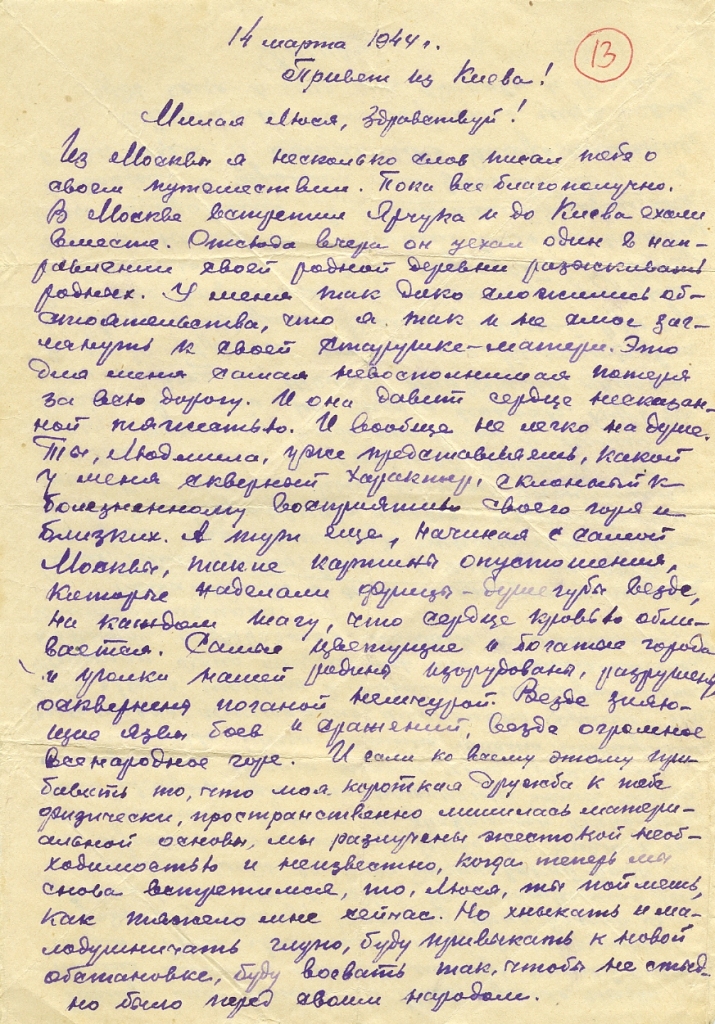 14 марта 1944 г.
13
Привет из Киева!
Милая Люся, здравствуй!
Из Москвы я несколько слов писал тебе о
своем путешествии. Пока все благополучно.
В Москве встретил Ярчука и до Киева ехали
вместе. Отсюда вчера он уехал один в нап-
равлении своей родной деревни разыскивать
родных. У меня так дико сложились об-
стоятельства, что я так и не смог заг-
лянуть к своей старушке-матери. Это
для меня самая невосполнимая потеря
за всю дорогу. И она давит сердце несказан-
ной тяжестью. И вообще не легко на душе.
Ты, Людмила, уже представляешь, какой
у меня скверный характер, склонный к
болезненному восприятию своего горя и
близких. А тут еще, начиная с самой
Москвы, такие картины опустошения,
которые наделали фрицы-душегубы везде,
на каждом шагу, что сердце кровью обли-
вается. Самые цветущие и богатые города
и уголки нашей родины изуродованы, разрушены,
осквернены поганой немчурой. Везде зияю-
щие язвы боев и сражений, везде огромное
всенародное горе. И если ко всему этому при-
бавить то, что моя короткая дружба к тебе
физически, пространственно лишилась матери-
альной основы, мы разлучены жестокой необ-
ходимостью и неизвестно, когда теперь мы
снова встретимся, то, Люся, ты поймешь,
как тяжело мне сейчас. Но хныкать и ма-
лодушничать глупо, буду привыкать к новой
обстановке, буду воевать так, чтобы не стыд-
но было перед своим народом.